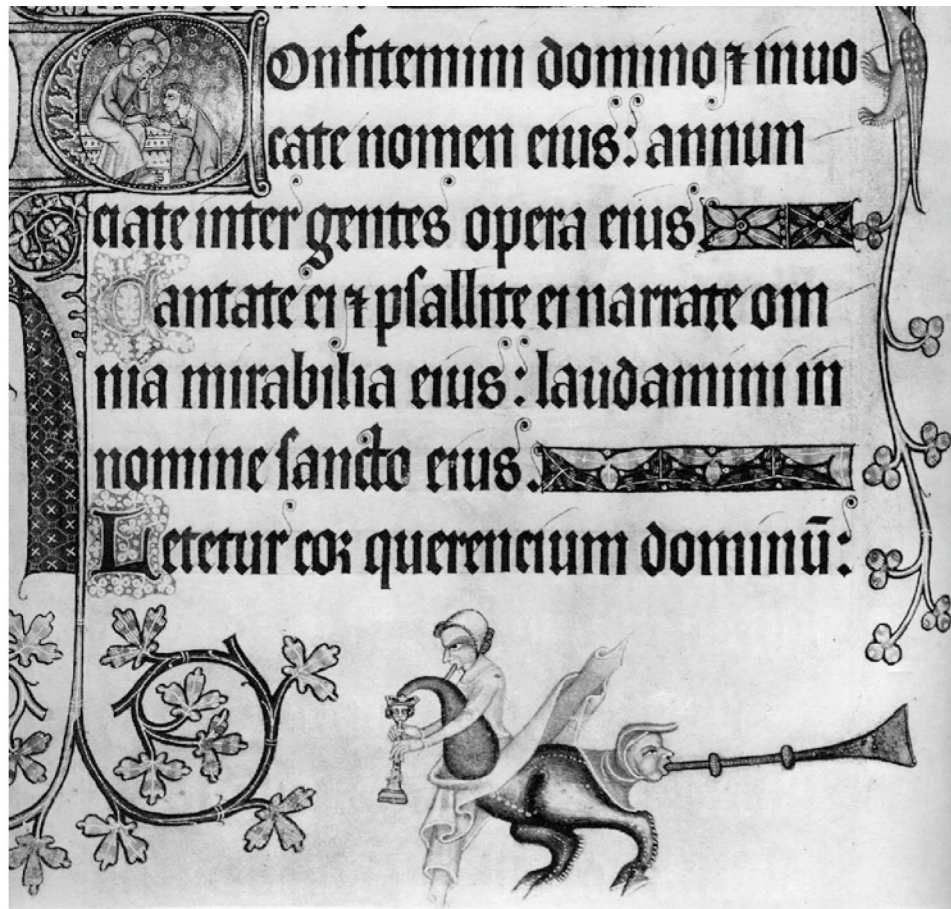 Confitemini domino ⁊ inuo
cate nomen eius: annun
ciate inter gentes opera eius
Cantate ei ⁊ psallite ei narrate om
nia mirabilia eius: laudamini in
nomine sancto eius.
Letetur cor querencium dominū: